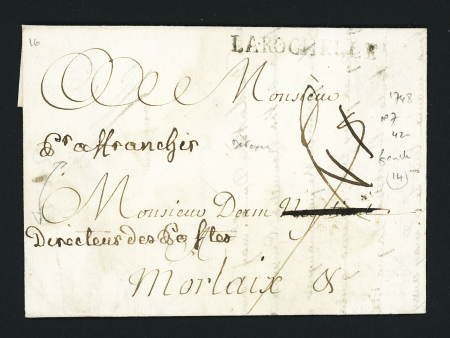 16
LAROCHELLE
Monsieur
1748
pr affranchir
Monsieur Derm
Directeur des Postes
Morlaix &
(14)